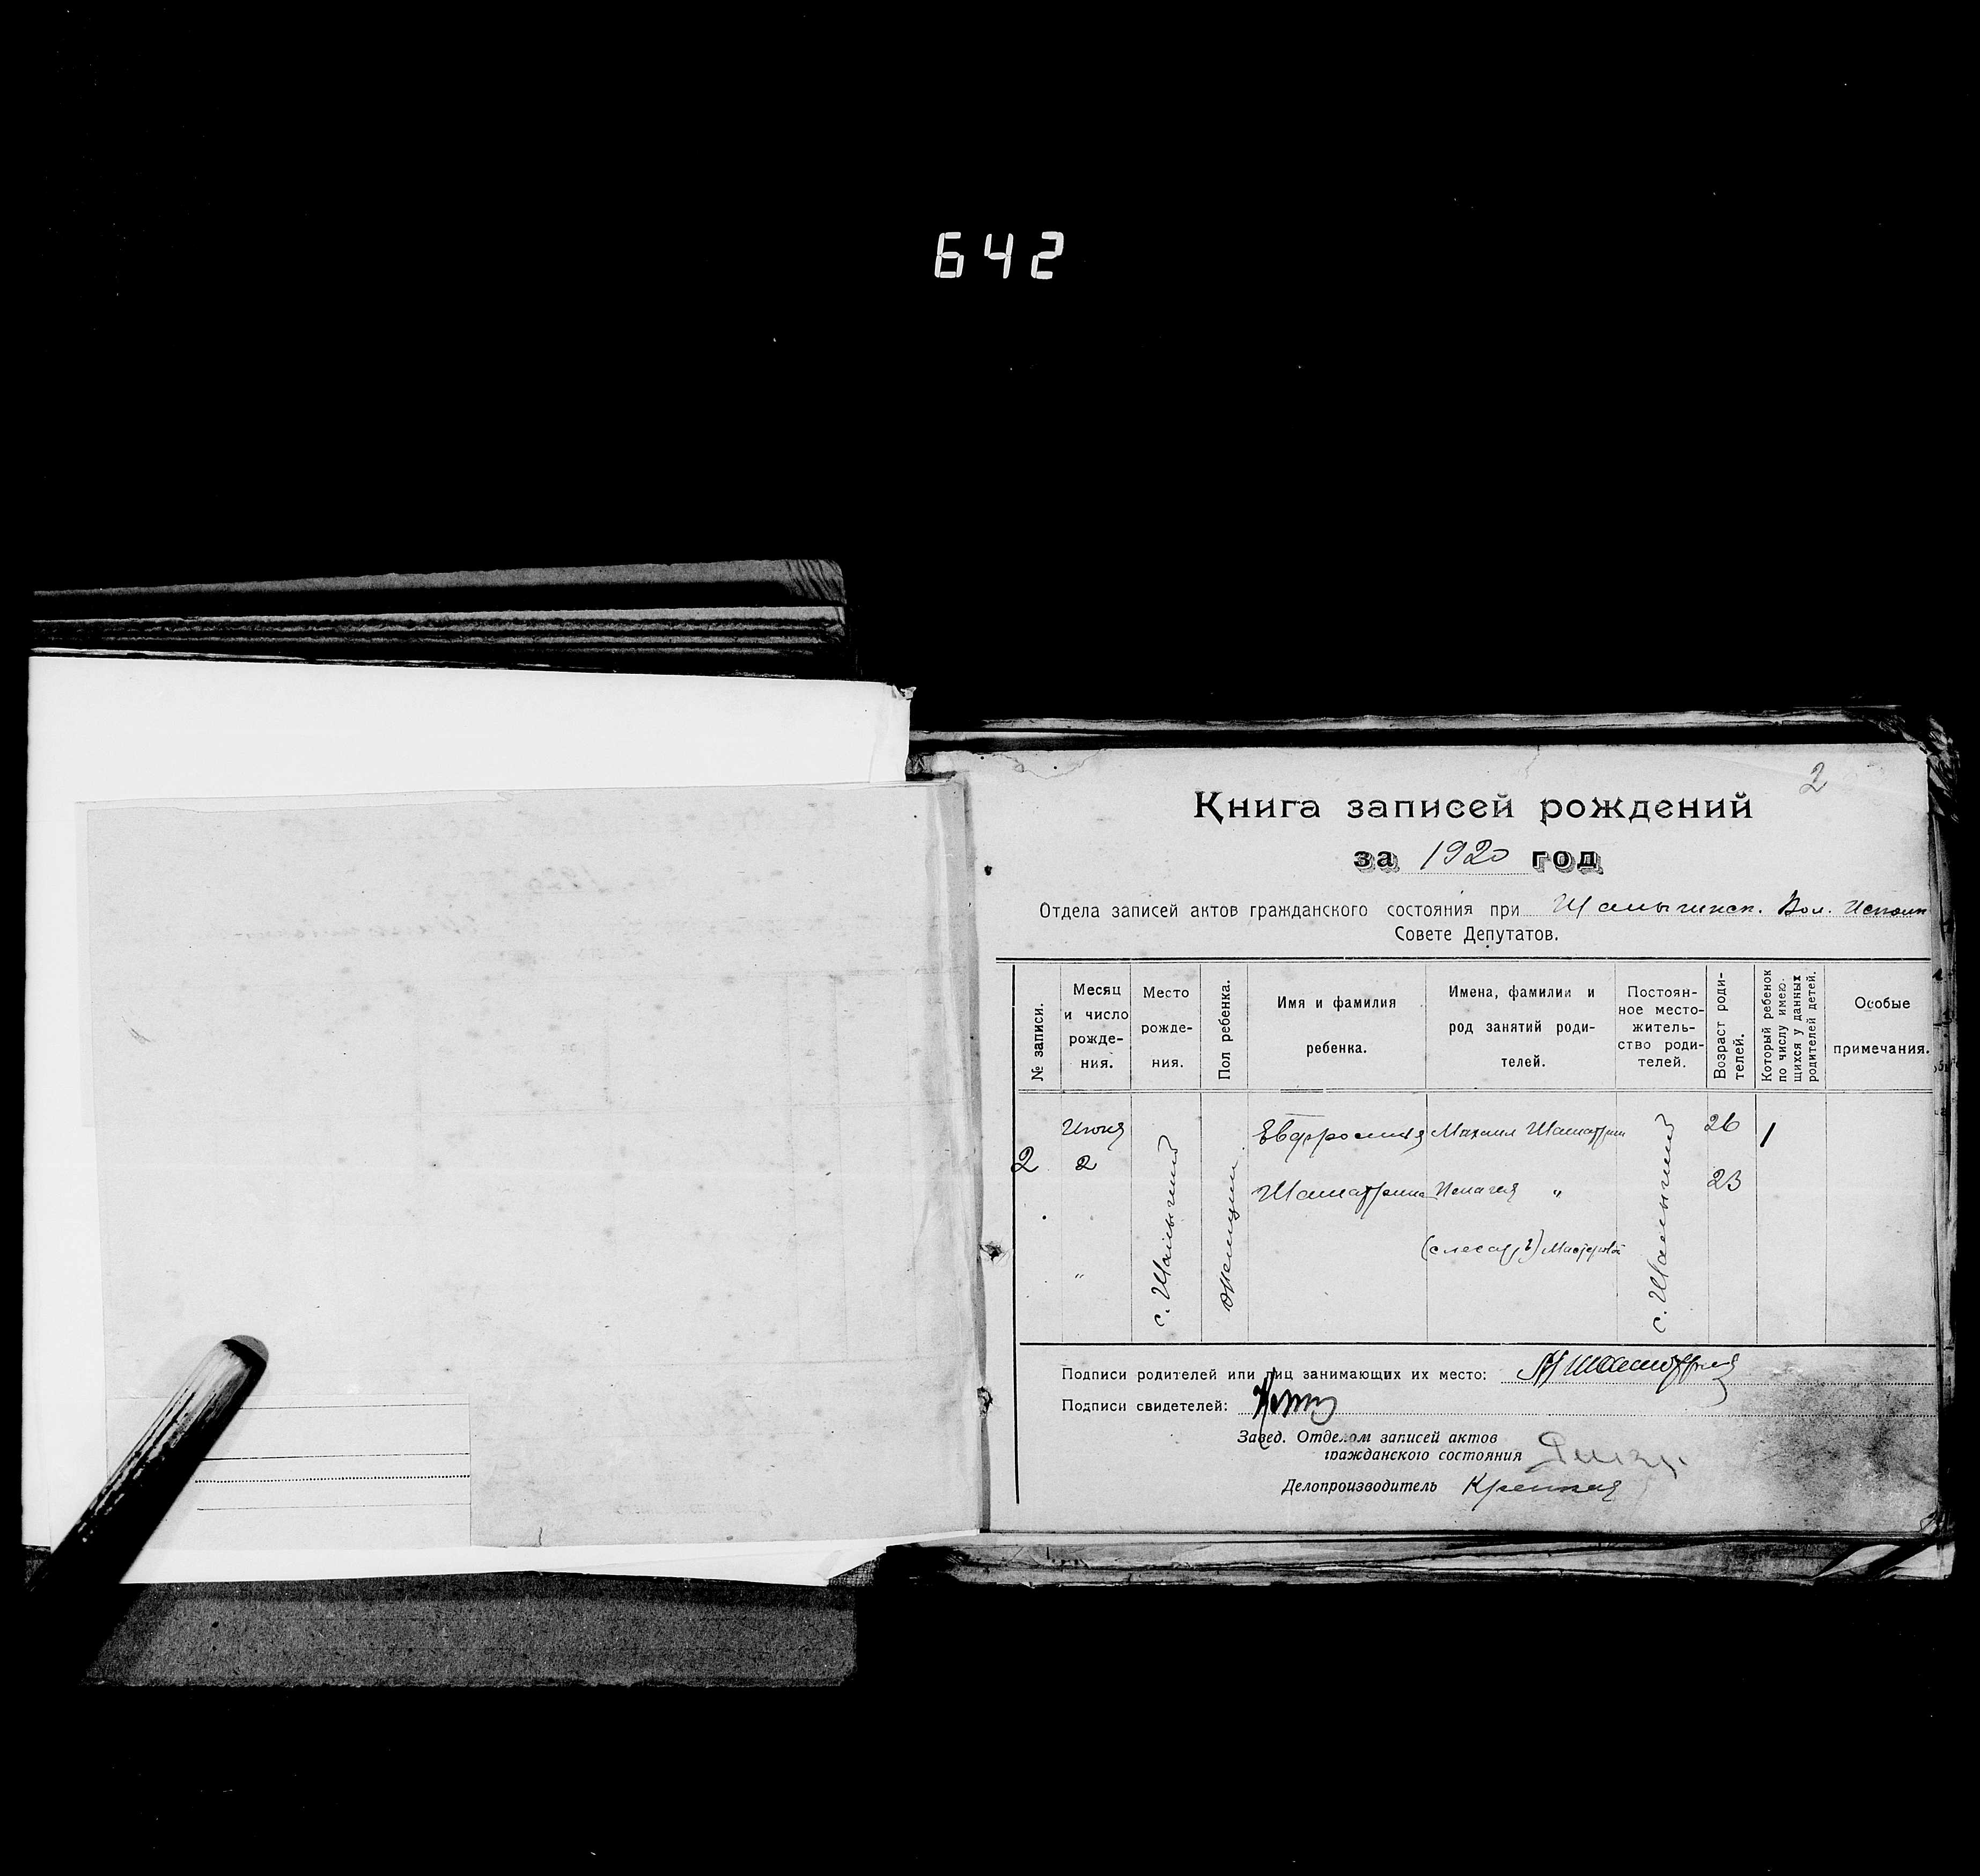 642
2
Книга записей рождений
за 1920 год
Отдела записей актов гражданского состояния при Шалыгинск. Вол. Исполк
Совете Депутатов.
№ записи.
Месяц и число рожде-ния.
Место рожде-ния.
Пол ребенка.
Имя и фамилия ребенка.
Имена, фамилии и род занятий роди-телей.
Постоян-ное место-житель-ство роди-телей.
Возраст роди-телей.
Который ребенок по числу имею-щихся у данных родителей детей.
Особые примечания.
2
Июня
2
"
с. Шалыгино
Женщин.
Евфросиния
Михаил
Пелагея "
(слесарь)
с. Шалыгино
26
23
1
Подписи родителей или лиц занимающих их место:
Подписи свидетелей:
Завед. Отделом записей актов
гражданского состояния
Делопроизводитель